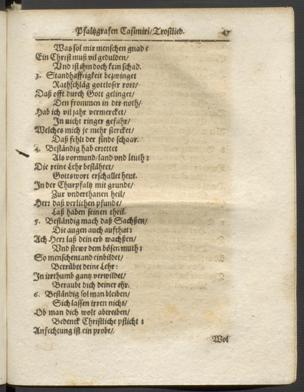 Pfaltzgrafen Casimiri/Trostlied.
Was sol mir menschen gnad?
Ein Christ muß vil gedulden/
Vnd ist ihm doch kein schad.
3. Standhafftigkeit bezwinget
Rathschläg gottloser rott/
Daß offt durch Gott gelinget/
Den frommen in der noth/
Hab ich vil jahr vermercket/
In nicht ringer gefahr/
Welches mich je mehr stercket/
Daß fehlt der sünde schaar.
4. Beständig hab errettet
Als vormund/land vnd leuth:
Die reine Lehr bestähtet/
Gottswort erschallet heut.
In der Churpfaltz mit grunde/
Zur vnderthanen heil/
Herr daß verlichen pfunde/
Laß haben seinen theil.
5. Beständig mach daß Sachßen/
Die augen auch auffthut:
Ach Herr laß dein erb wachßen/
Vnd stewr dem bösen muth:
So menschentand einbildet/
Betrübt deine Lehr:
In irrthumb gantz verwildet/
Beraubt dich deiner ehr.
6. Beständig sol man bleiben/
Sich lassen irren nicht/
Ob man dich wolt abtreiben/
Bedenck Christliche pflicht:
Anfechtung ist ein probe/
Wol